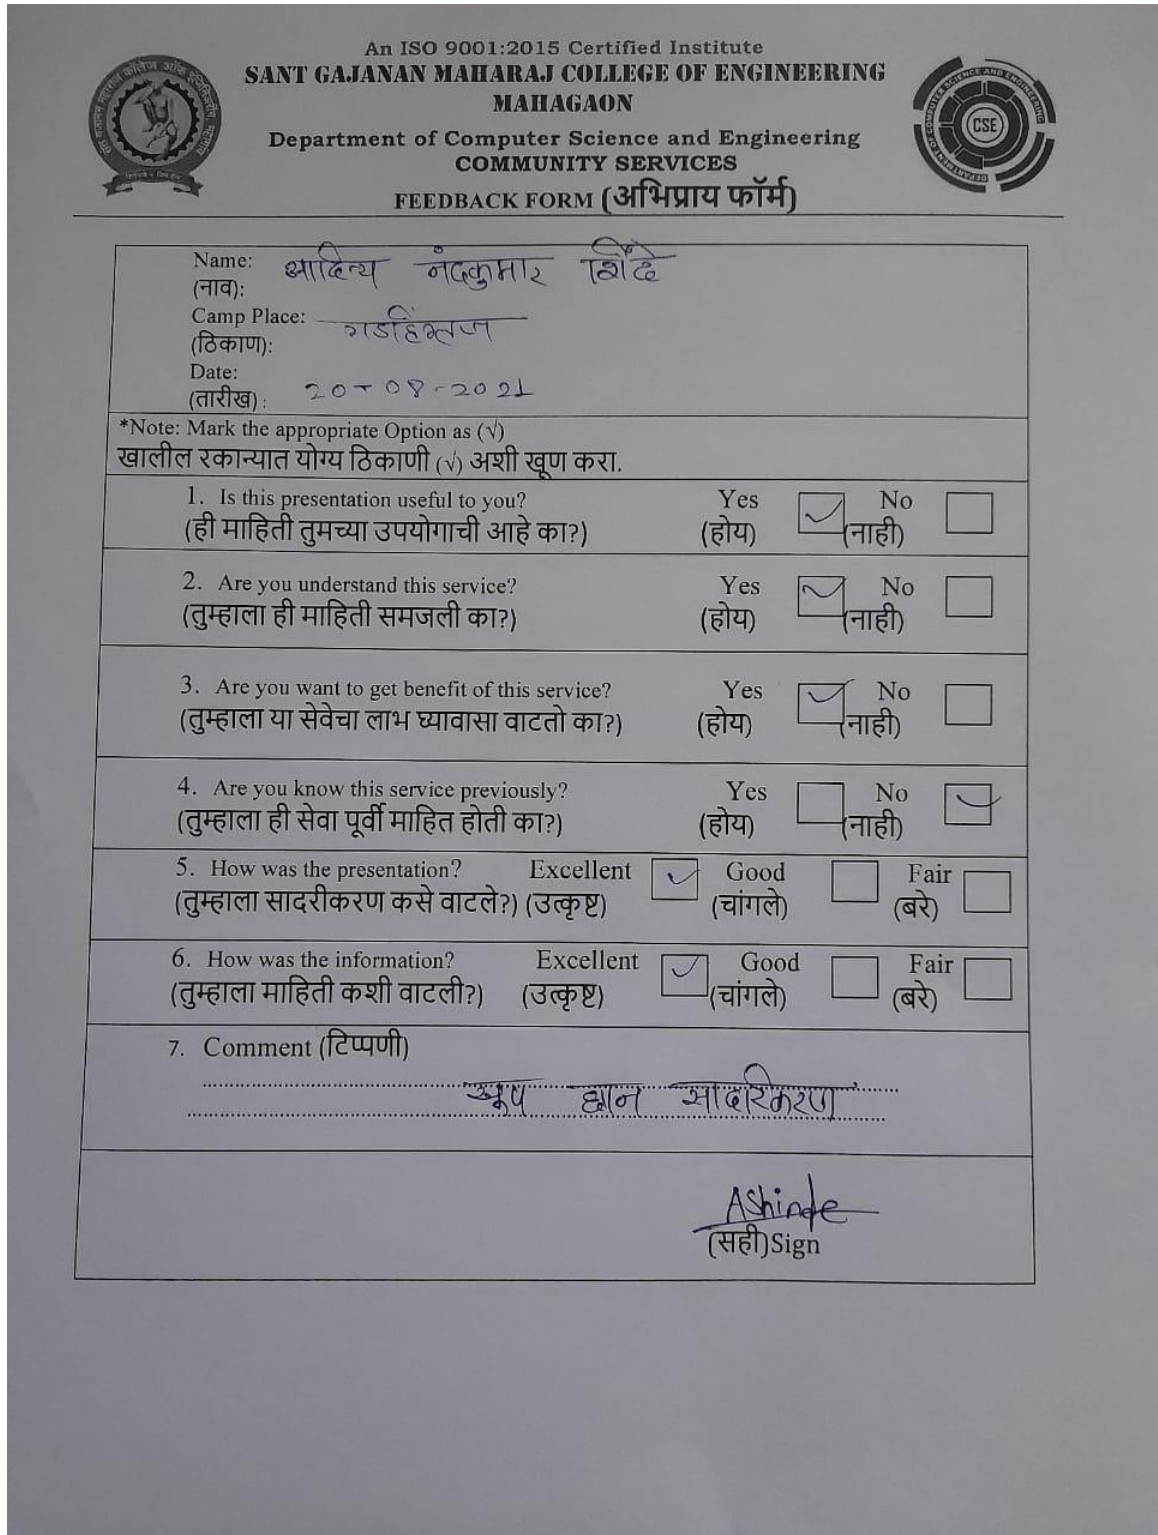 An ISO 9001:2015 Certified Institute
SANT GAJANAN MAHARAJ COLLEGE OF ENGINEERING
MAHAGAON
Department of Computer Science and Engineering
COMMUNITY SERVICES
FEEDBACK FORM (अभिप्राय फॉर्म)
CSE
Name: आदित्य नंदकुमार शिंदे
(नाव):
Camp Place: गडहिंग्लज
(ठिकाण):
Date:
(तारीख): 20-08-2021
*Note: Mark the appropriate Option as (√)
खालील रकान्यात योग्य ठिकाणी (√) अशी खूण करा.
1. Is this presentation useful to you? Yes ✓ No
(ही माहिती तुमच्या उपयोगाची आहे का?) (होय) (नाही)
2. Are you understand this service? Yes ✓ No
(तुम्हाला ही माहिती समजली का?) (होय) (नाही)
3. Are you want to get benefit of this service? Yes ✓ No
(तुम्हाला या सेवेचा लाभ घ्यावासा वाटतो का?) (होय) (नाही)
4. Are you know this service previously? Yes No ✓
(तुम्हाला ही सेवा पूर्वी माहित होती का?) (होय) (नाही)
5. How was the presentation? Excellent ✓ Good Fair
(तुम्हाला सादरीकरण कसे वाटले?) (उत्कृष्ट) (चांगले) (बरे)
6. How was the information? Excellent ✓ Good Fair
(तुम्हाला माहिती कशी वाटली?) (उत्कृष्ट) (चांगले) (बरे)
7. Comment (टिप्पणी)
खूप छान सादरिकरण
AShinde
(सही)Sign